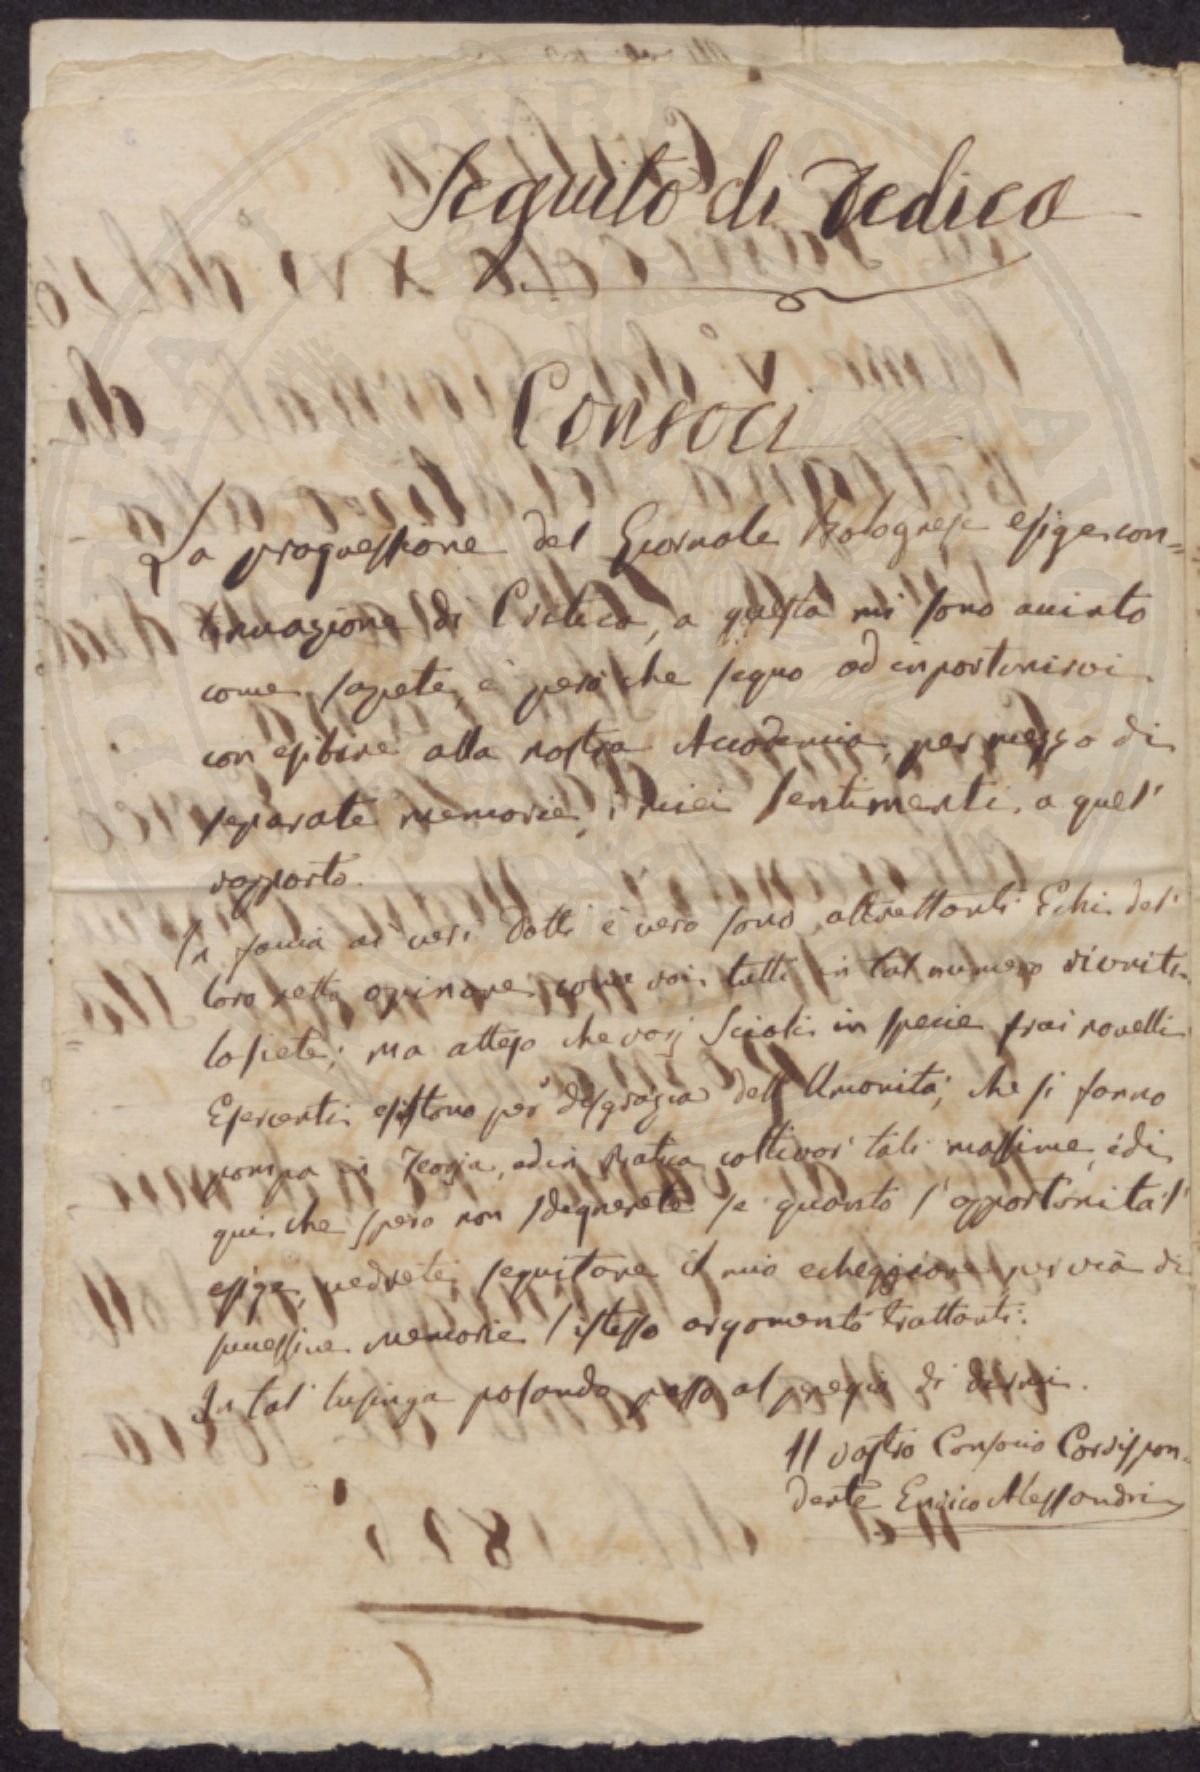 Seguito di Dedica
Consoci
La progressione del Giornale Bolognese esige con=
tinuazione di Critica, a questa mi sono avinto
come sapete, e però che seguo ad inportunirvi
con esibire alla nostra Accademia, per mezzo di
separate memorie, i miei sentimenti a quel'
rapporto.
In faccia ai veri Dotti è vero sono altrettanti Echi del'
loro retto opinare, come voi tutti in tal numero riuniti
lo siete; ma atteso che varj Scioli in specie frai novelli
Esercenti esistono per disgrazia dell'Umanità, che si fanno
pompa in Teoria, ed in Pratica coltivar tali massime, è di
qui che spero non sdegnerete se quanto l'opportunità l'
esige, vedrete, seguitare il mio echeggiare per via di
successive memorie l'istesso argomento trattanti.
In tal' lusinga posando passo al pregio di dirmi.
Il vostro Consocio Corrispon=
dente Enrico Alessandri